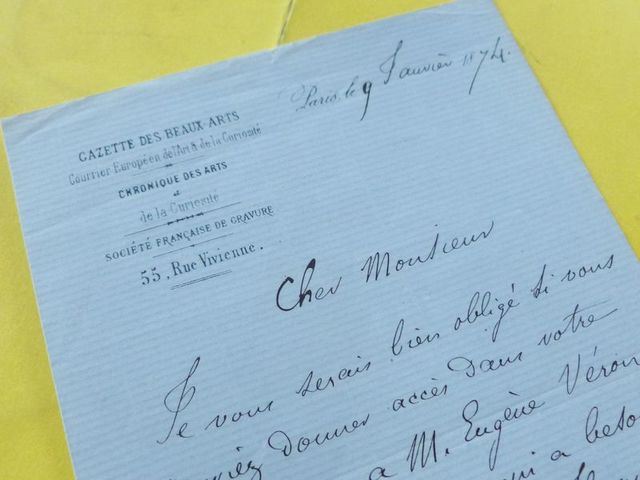 GAZETTE DES BEAUX-ARTS
Courrier Européen de l'Art & de la Curiosité
CHRONIQUE DES ARTS
et
de la Curiosité
SOCIÉTÉ FRANÇAISE DE GRAVURE
55, Rue Vivienne.
Paris, le 9 Janvier 1874.
Cher Monsieur
Je vous serais bien obligé si vous
donner accès dans votre
a M. Eugène Véron
qui a beso